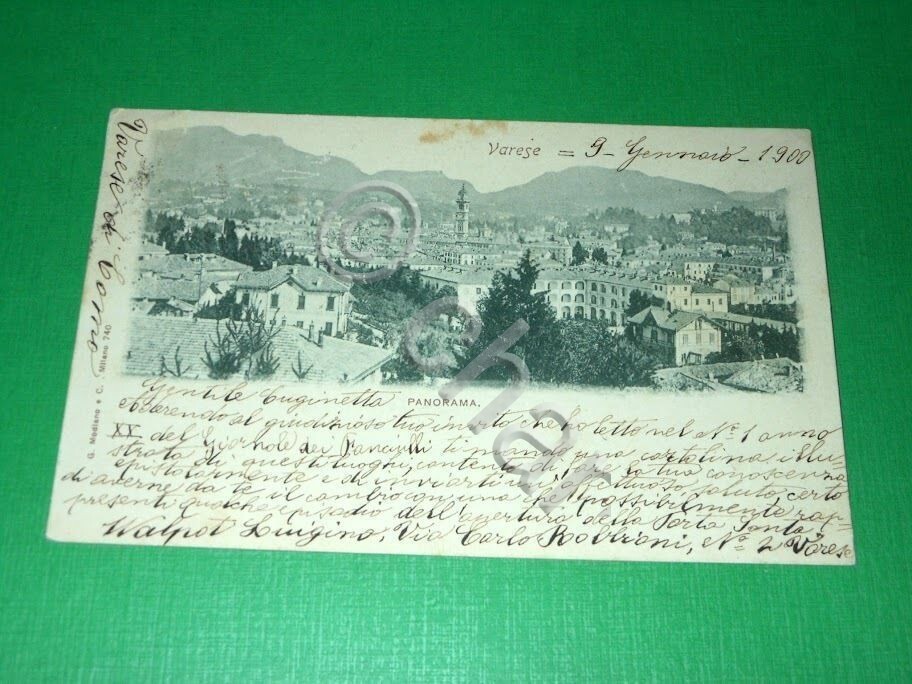 Varese = 9 - Gennaio - 1900
Varese di Como
G. Modiano e C. Milano 740
PANORAMA.
Gentile Cuginetta
Aderendo al giudizioso tuo invito che ho letto nel Nº 1 anno
XX del Giornale dei Fanciulli ti mando una cartolina illu-
strata di questi luoghi, contento di fare la tua conoscenza
epistolarmente e di inviarti un affettuoso saluto, certo
di averne da te il cambio con una che possibilmente rap-
presenti qualche episodio dell'apertura della Porta Santa.
Walpot Luigino, Via Carlo Nº 2 Varese
© ehar